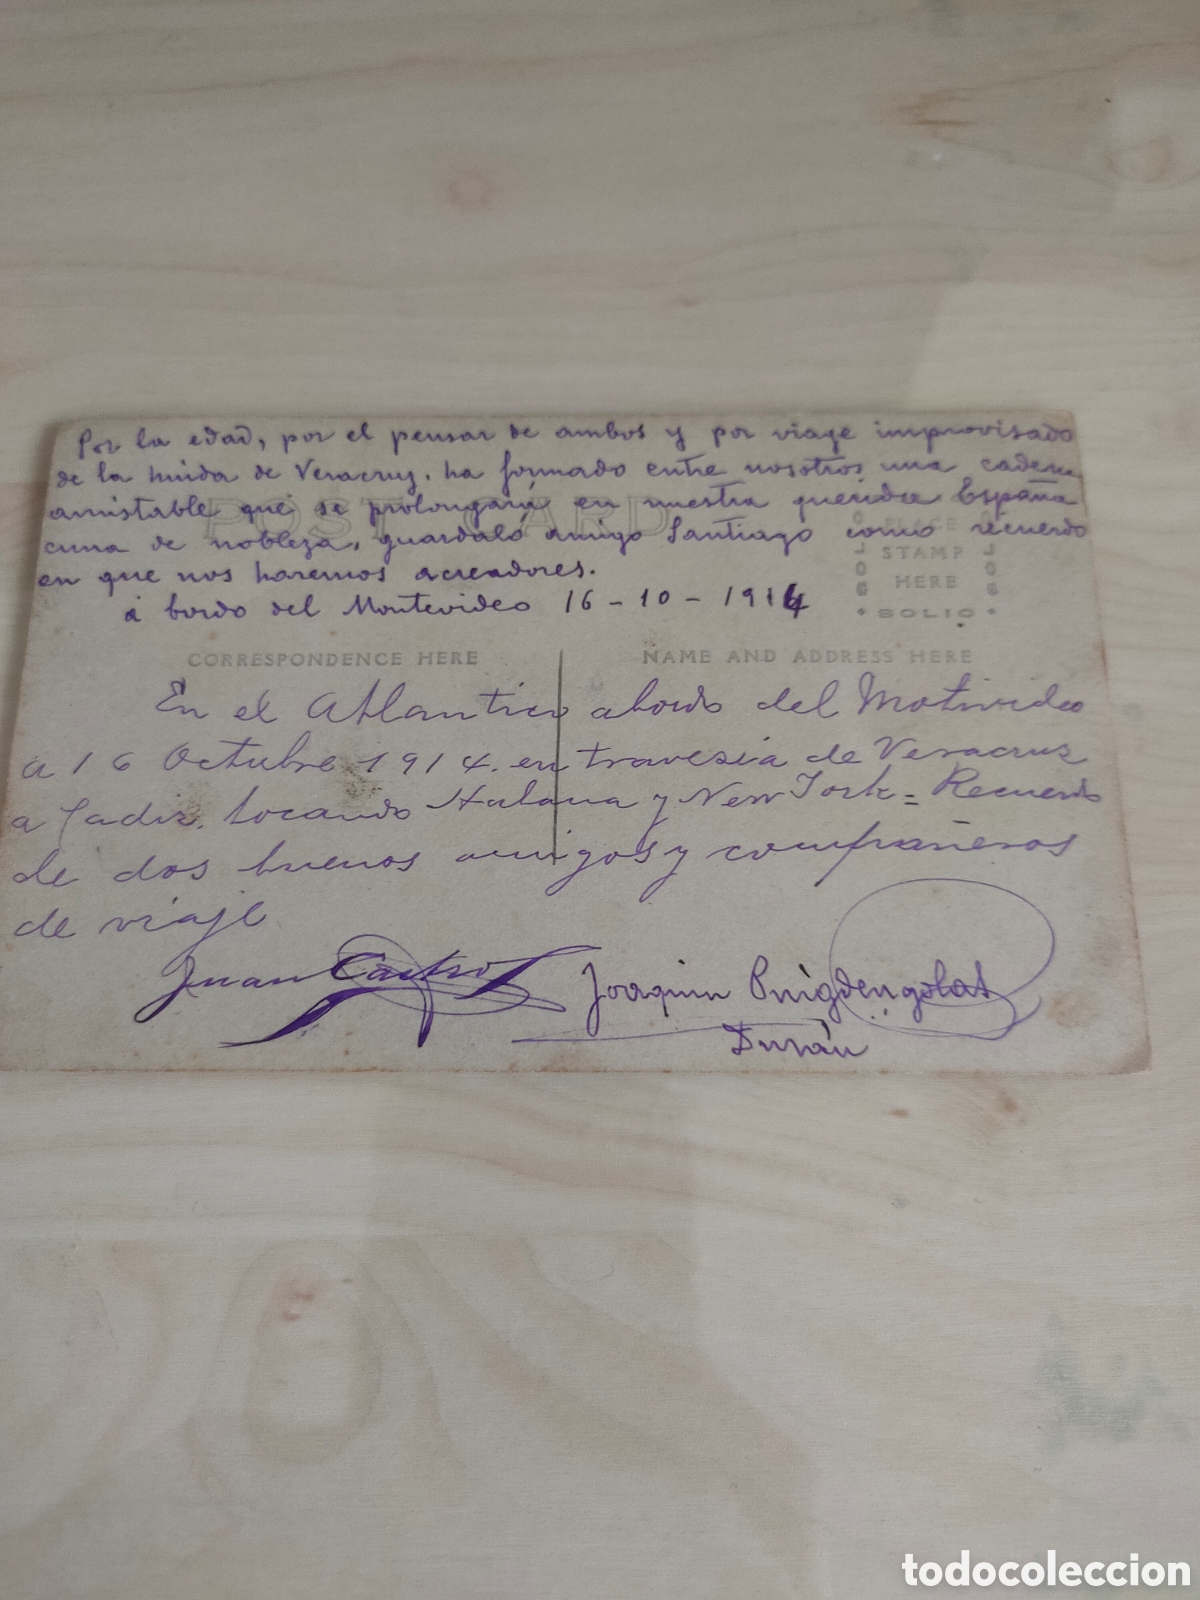 Por la edad, por el pensar de ambos y por viage improvisado
de la huida de Veracruz, ha formado entre nosotros una cadena
amistable que se prolongará en nuestra querida España
cuna de nobleza, guardalo amigo Santiago como recuerdo
en que nos haremos acreadores.
á bordo del Montevideo 16-10-1914
POST CARD
PLACE
STAMP
HERE
SOLIO
CORRESPONDENCE HERE
NAME AND ADDRESS HERE
En el Atlantico abordo del Motivideo
a 16 Octubre 1914. en travesia de Veracruz
a Cadiz, tocando Habana y New York = Recuerdo
de dos buenos amigos y compañeros
de viaje
Juan Castro
Joaquin Puigdengolat
Durán
todocoleccion